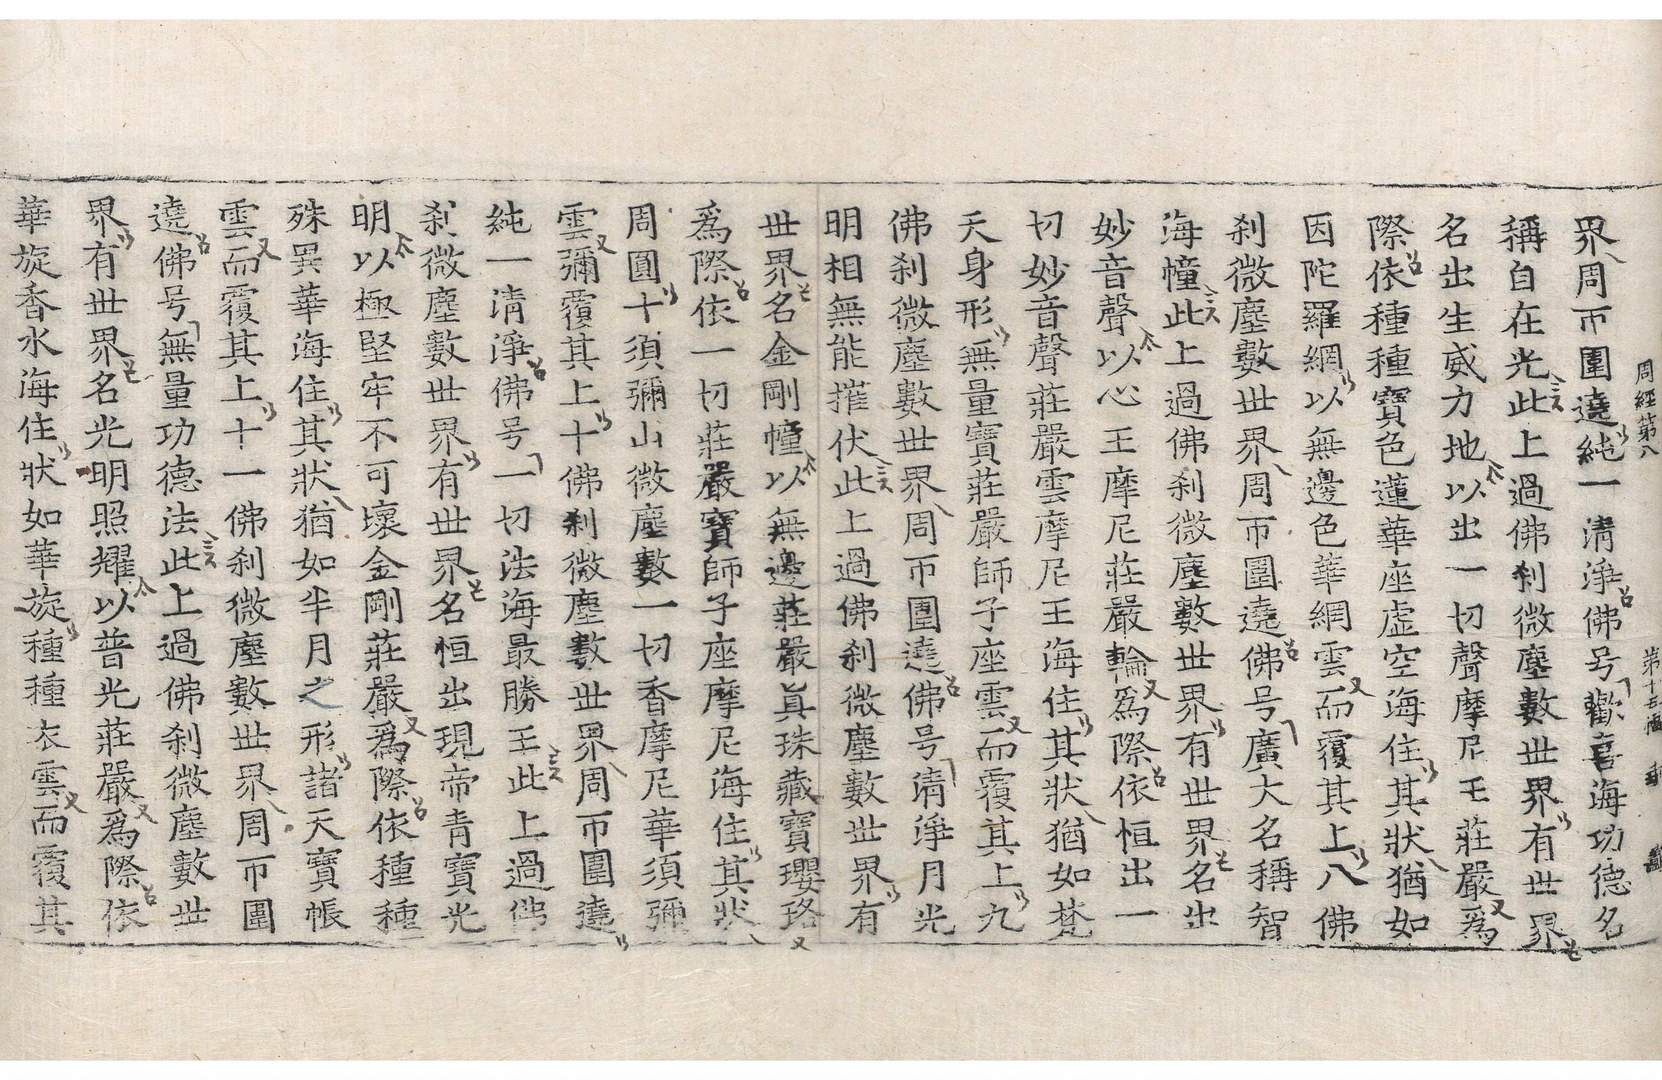 周經第八
界周帀圍遶純一清淨佛号歡喜海功德名
稱自在光此上過佛刹微塵數世界有世界
名出生威力地以出一切聲摩尼王莊嚴爲
際依種種寶色蓮華座虛空海住其狀猶如
因陀羅網以無邊色華網雲而覆其上八佛
刹微塵數世界周帀圍遶佛号廣大名稱智
海幢此上過佛刹微塵數世界有世界名出
妙音聲以心王摩尼莊嚴輪爲際依恒出一
切妙音聲莊嚴雲摩尼王海住其狀猶如梵
天身形無量寶莊嚴師子座雲而覆其上九
佛刹微塵數世界周帀圍遶佛号清淨月光
明相無能摧伏此上過佛刹微塵數世界有
世界名金剛幢以無邊莊嚴眞珠藏寶瓔珞
爲際依一切莊嚴寶師子座摩尼海住其狀
周圓十須彌山微塵數一切香摩尼華須彌
雲彌覆其上十佛刹微塵數世界周帀圍遶
純一清淨佛号一切法海最勝王此上過佛
刹微塵數世界有世界名恒出現帝青寶光
明以極堅牢不可壞金剛莊嚴爲際依種種
殊異華海住其狀猶如半月之形諸天寶帳
雲而覆其上十一佛刹微塵數世界周帀圍
遶佛号無量功德法此上過佛刹微塵數世
界有世界名光明照耀以普光莊嚴爲際依
華旋香水海住狀如華旋種種衣雲而覆其